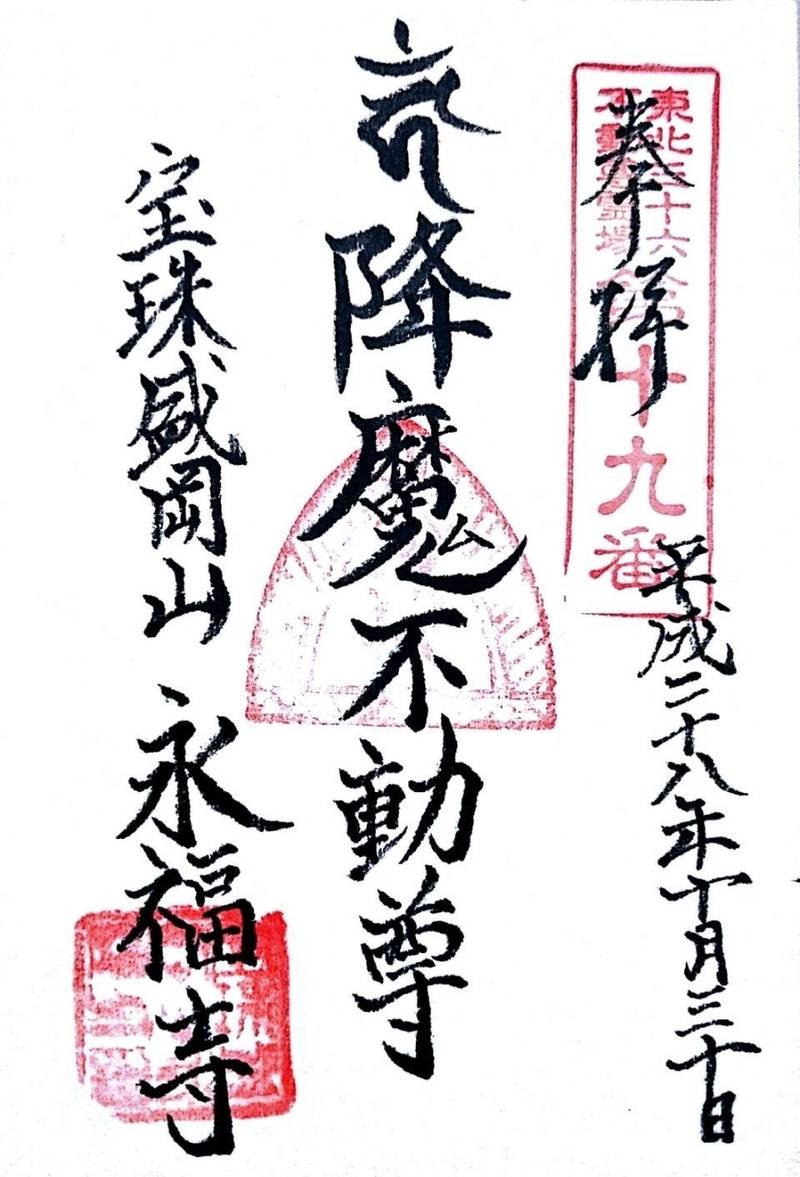 奉拝
東北三十六
不動尊霊場
第十九番
平成二十八年十月三十日
降魔不動尊
宝珠盛岡山 永福寺